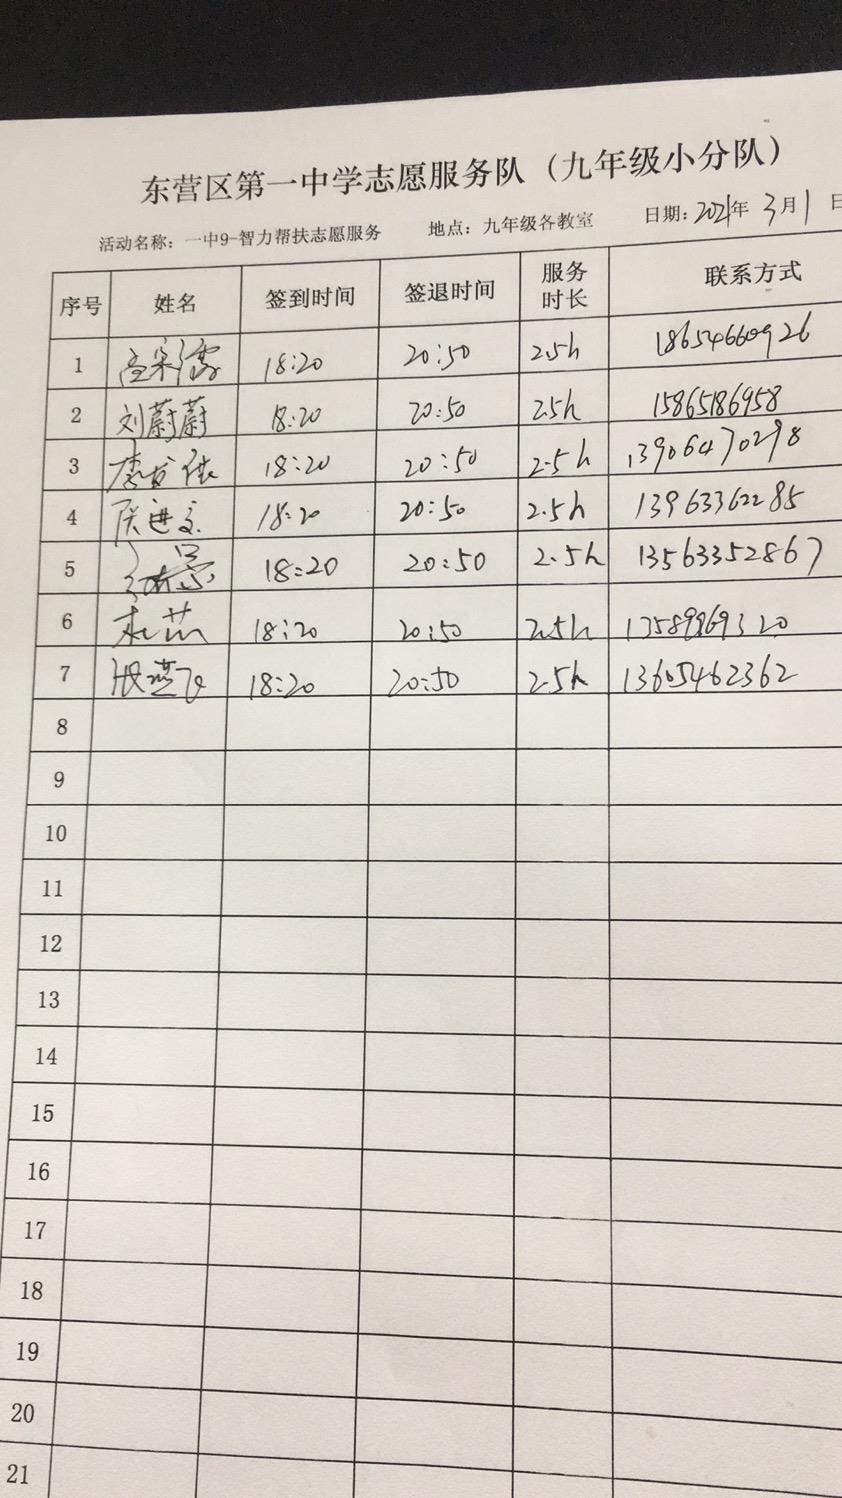 东营区第一中学志愿服务队（九年级小分队）
活动名称：一中9-智力帮扶志愿服务 地点：九年级各教室 日期：2021年 3月1日
序号 姓名 签到时间 签退时间 服务时长 联系方式
1 18:20 20:50 2.5h 18654660926
2 刘蔚蔚 18:20 20:50 2.5h 15865186958
3 18:20 20:50 2.5h 13906470298
4 18:20 20:50 2.5h 13963362285
5 18:20 20:50 2.5h 13563352867
6 18:20 20:50 2.5h 13589969320
7 张燕飞 18:20 20:50 2.5h 13605462362
8
9
10
11
12
13
14
15
16
17
18
19
20
21